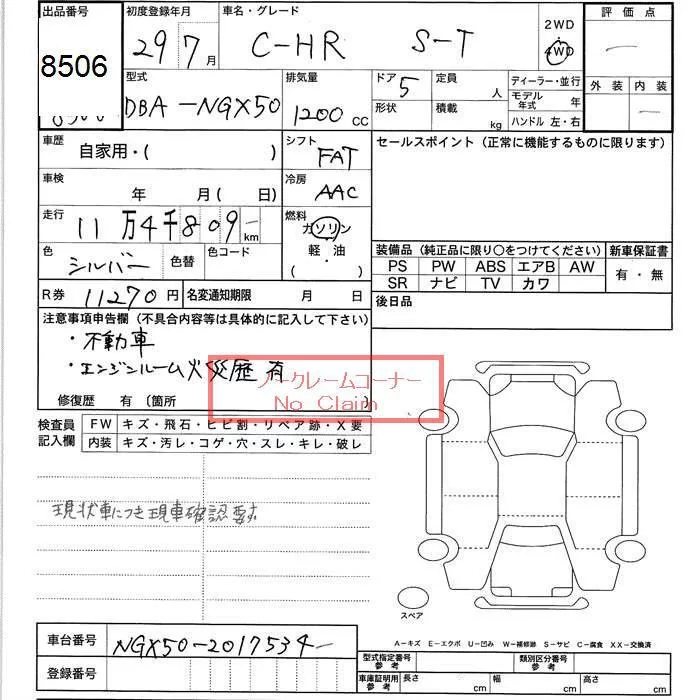 出品番号 初度登録年月 車名・グレード 2WD 評価点
8506 29 7月 C-HR S-T 4WD 一
型式 排気量 ドア 5 定員 人 ディーラー・並行 外装 内装
DBA-NGX50 1200 CC 形状 積載 kg モデル年式 年 一
ハンドル 左・右
車歴 自家用・( ) シフト FAT セールスポイント(正常に機能するものに限ります)
車検 年 月( 日) 冷房 AAC
走行 11万4千809 km 燃料 ガソリン
軽・油
( ・ )
色 シルバー 色替 色コード
装備品(純正品に限り〇をつけてください) 新車保証書
PS PW ABS エアB AW 有・無
SR ナビ TV カワ
R券 11270円 名変通知期限 月 日 後日品
注意事項申告欄(不具合内容等は具体的に記入して下さい)
・不動車
・エンジンルーム火災歴有
ノークレームコーナー
No Claim
修復歴 有 (箇所 )
検査員記入欄 FW キズ・飛石・ヒビ割・リペア跡・X要
内装 キズ・汚レ・コゲ・穴・スレ・キレ・破レ
現状車につき現車確認要す
スペア
車台番号 NGX50-2017534
登録番号
A-キズ E-エクボ U-凹み W-補修跡 S-サビ C-腐食 XX-交換済
型式指定番号 参考 類別区分番号 参考
車庫証明用 参考 長さ cm 幅 cm 高さ cm